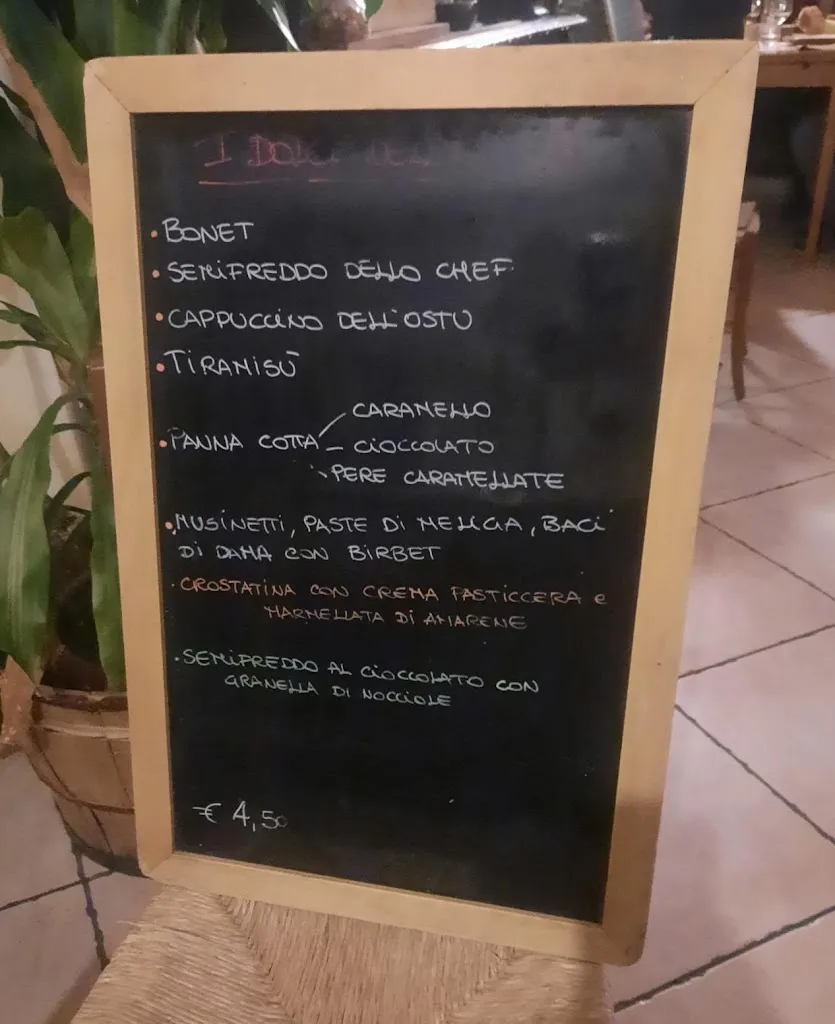 I DOLCI
• BONET
• SEMIFREDDO DELLO CHEF
• CAPPUCCINO DELL'OSTU
• TIRAMISÙ
CARAMELLO
• PANNA COTTA - CIOCCOLATO
PERE CARAMELLATE
• MUSINETTI, PASTE DI MELIGA, BACI
DI DAMA CON BIRBET
• CROSTATINA CON CREMA PASTICCERA E
MARMELLATA DI AMARENE
• SEMIFREDDO AL CIOCCOLATO CON
GRANELLA DI NOCCIOLE
€ 4,50